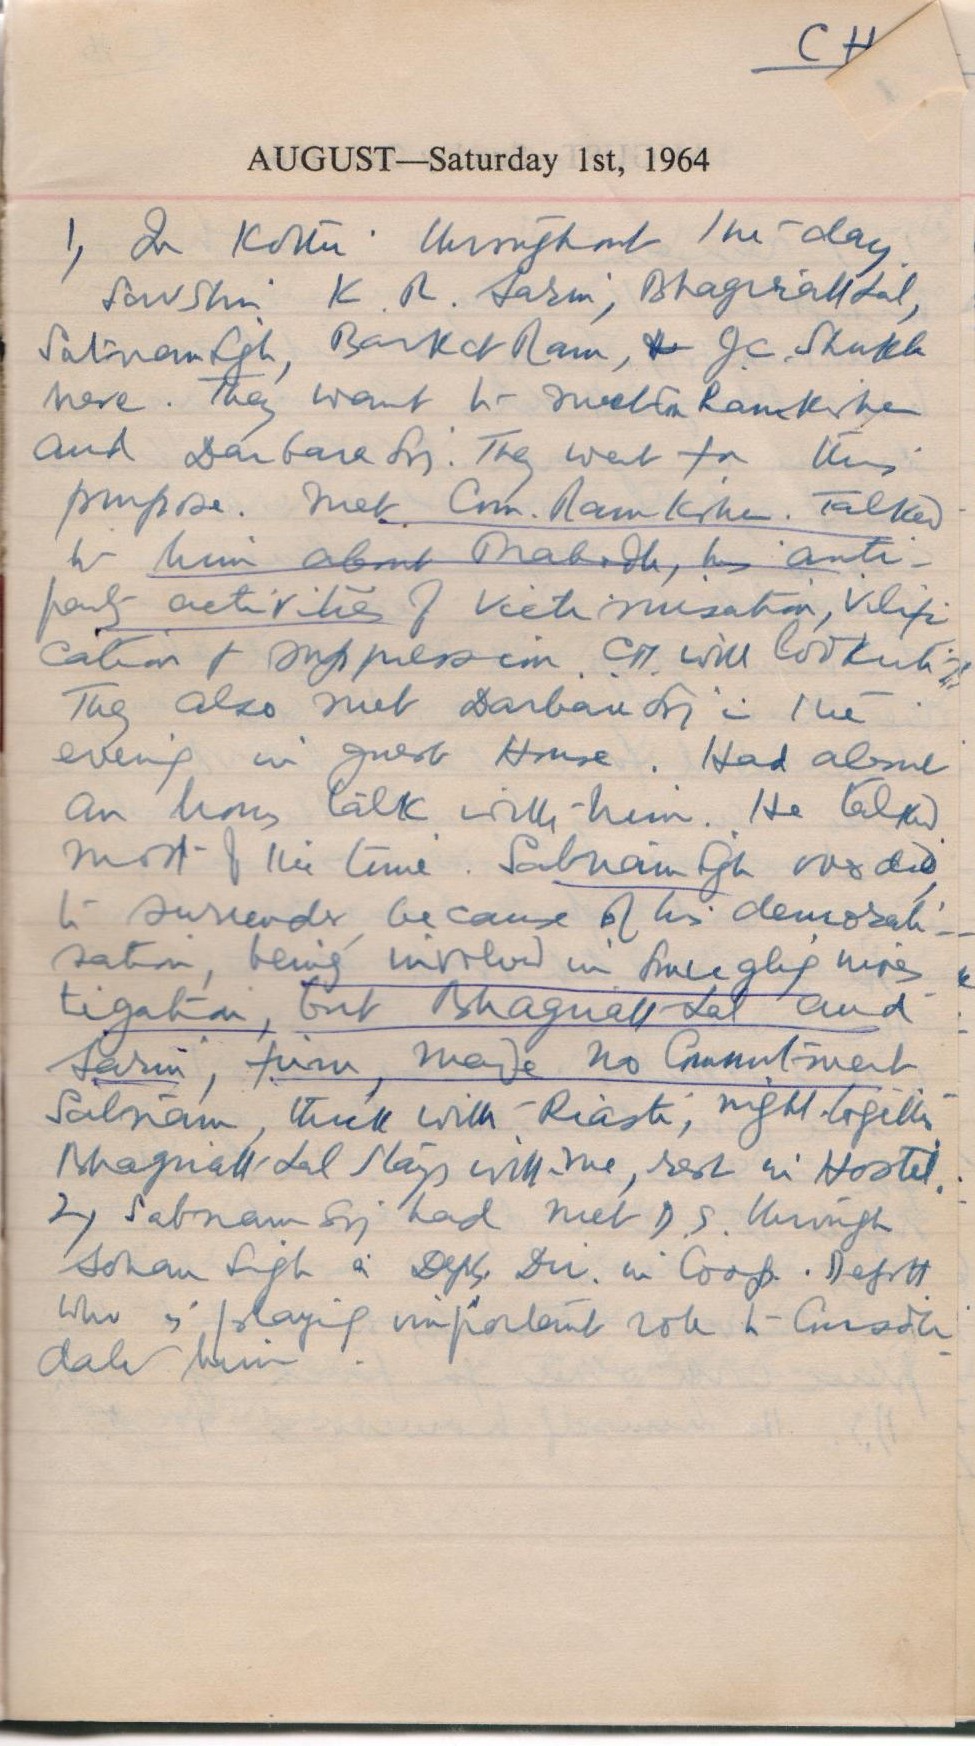 CH
AUGUST—Saturday 1st, 1964
1, In Kothi throughout the day.
SarvShri K. R. Sarin, BhagriathLal,
Satnam Sgh, Barkat Ram, & J.C. Shukla
here. They want to meet Cm Ramkishen
and Darbara Sij. They went for this
purpose. Met Com. Ram Kishen. Talked
to him about Prabodh, his anti-
party activities of victimisation, vilifi
cation & suppression. CM will look into it
They also met Darbara Sij in the
evening in guest House. Had about
an hours talk with him. He talked
most of the time. Satnam Sgh
to surrender because of his demorali-
sation, being involved in smugglig inves
tigation, but Bhagriath Lal and
Sarin, firm, made no Commitment
Satnam, thick with Riasti, night together
Bhagriath Lal stays with me, rest in Hostel.
2, Satnam Sij had met D.S. through
Sohan Sigh a Dpty. Dir. in Coop. Deptt
who is playing important role to Consoli-
date him.